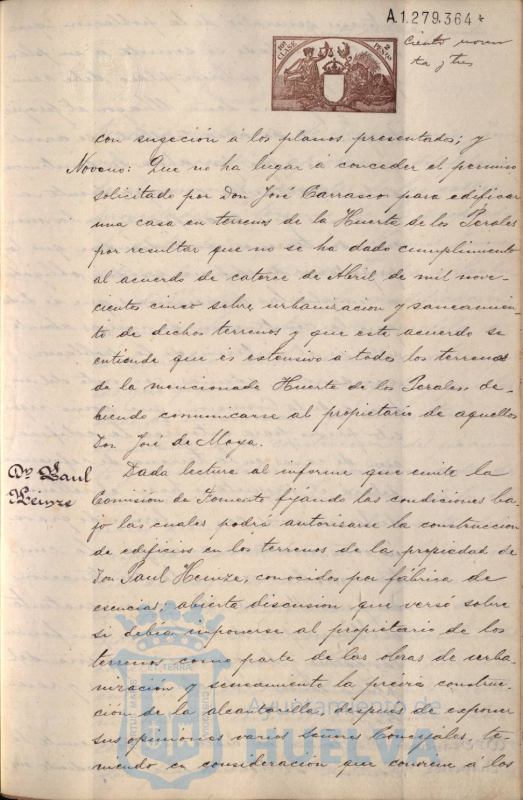 A.1.279.364*
10ª CLASE
2 PESETAS
Ciento noven
ta y tres
con sugeción á los planos presentados; y
Noveno: Que no ha lugar á conceder el permiso
solicitado por Don José Carrasco para edificar
una casa en terrenos de la Huerta de los Perales
por resultar que no se ha dado cumplimiento
al acuerdo de catorce de Abril de mil nove-
cientos cinco sobre urbanizacion y saneamien-
to de dichos terrenos y que este acuerdo se
entiende que és extensivo á todos los terrenos
de la mencionada Huerta de los Perales, de-
biendo comunicarse al propietario de aquellos
Don José de Moya.
Dn Paul
Heinze
Dada lectura al informe que emite la
Comisión de Fomento fijando las condiciones ba-
jo las cuales podrá autorizarse la construccion
de edificios en los terrenos de la propiedad de
Don Paul Heinze, conocidos por fábrica de
esencias; abierta discusion que versó sobre
si debía imponerse al propietario de los
terrenos como parte de las obras de urba-
nización y saneamiento la prévia construc-
ción de la alcantarilla, despues de exponer
sus opiniones varios Señores Concejales, te-
niendo en consideración que conviene á los
Ayuntamiento de
HUELVA